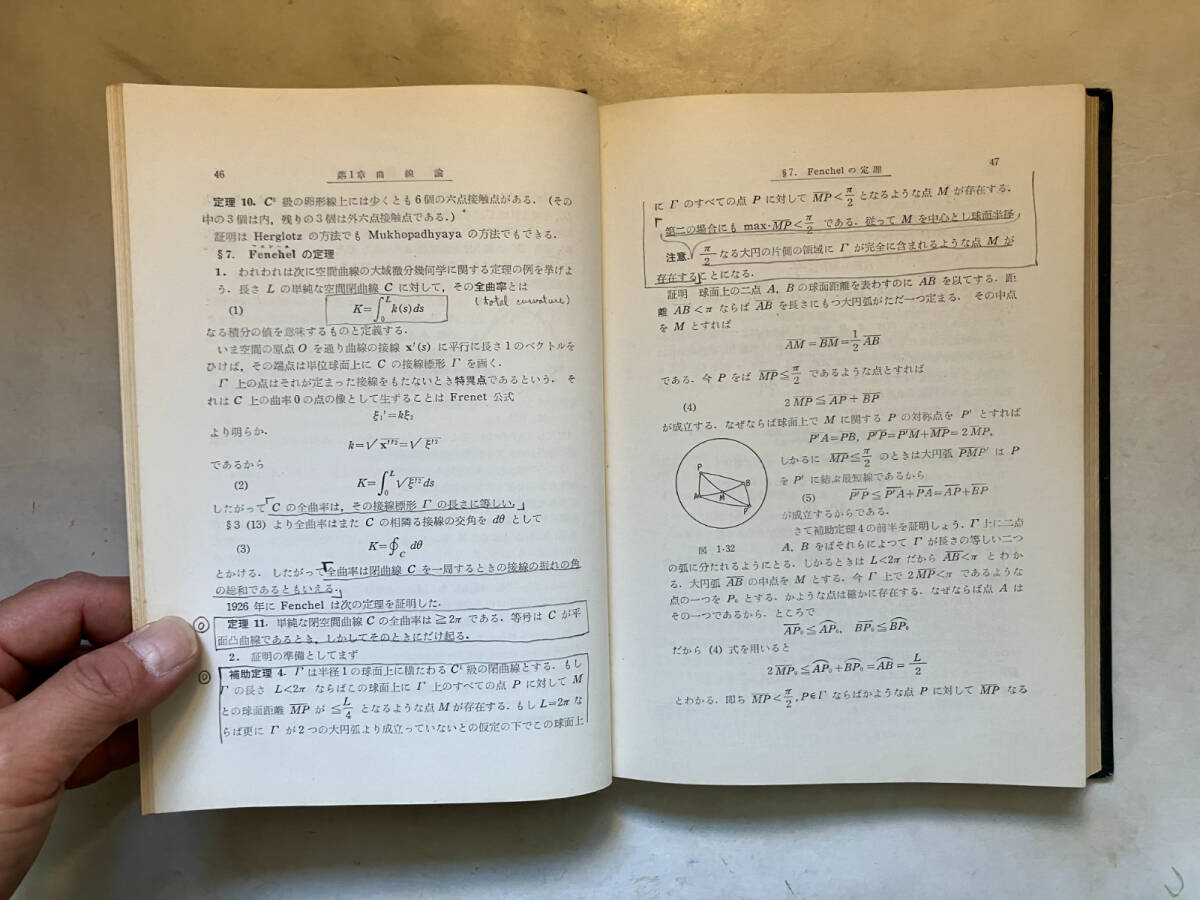 46
第1章 曲線論
定理 10. C⁵ 級の卵形線上には少くとも6個の六点接触点がある．(その
中の3個は内，残りの3個は外六点接触点である．)
証明は Herglotz の方法でも Mukhopadhyaya の方法でもできる．
§7. Fenchel の定理
1. われわれは次に空間曲線の大域微分幾何学に関する定理の例を挙げよ
う．長さ L の単純な空間閉曲線 C に対して，その全曲率とは
(total curvature)
(1) K=∫₀ᴸ k(s)ds
なる積分の値を意味するものと定義する．
いま空間の原点 O を通り曲線の接線 x′(s) に平行に長さ1のベクトルを
ひけば，その端点は単位球面上に C の接線標形 Γ を画く．
Γ 上の点はそれが定まった接線をもたないとき特異点であるという．そ
れは C 上の曲率0の点の像として生ずることは Frenet 公式
ξ₁′=kξ₂
より明らか．
k=√x″²=√ξ′²
であるから
(2) K=∫₀ᴸ √ξ′² ds
したがって「C の全曲率は，その接線標形 Γ の長さに等しい．」
§3 (13) より全曲率はまた C の相隣る接線の交角を dθ として
(3) K=∮_C dθ
とかける．したがって「全曲率は閉曲線 C を一周するときの接線の振れの角
の総和であるともいえる．」
1926 年に Fenchel は次の定理を証明した．
定理 11. 単純な閉空間曲線 C の全曲率は ≧2π である．等号は C が平
面凸曲線であるとき，しかしてそのときにだけ起る．
2. 証明の準備としてまず
補助定理 4. Γ は半径1の球面上に横たわる C¹ 級の閉曲線とする．もし
Γ の長さ L<2π ならばこの球面上に Γ 上のすべての点 P に対して M
との球面距離 M̅P̅ が ≦L/4 となるような点 M が存在する．もし L=2π な
らば更に Γ が2つの大円弧より成立っていないとの仮定の下でこの球面上
§7. Fenchel の定理
47
に Γ のすべての点 P に対して M̅P̅<π/2 となるような点 M が存在する．
「第二の場合にも max·M̅P̅<π/2 である．従って M を中心とし球面半径
注意．π/2 なる大円の片側の領域に Γ が完全に含まれるような点 M が
存在する」ことになる．
証明 球面上の二点 A, B の球面距離を表わすのに A̅B̅ を以てする．距
離 A̅B̅<π ならば A̅B̅ を長さにもつ大円弧がただ一つ定まる．その中点
を M とすれば
A̅M̅=B̅M̅=1/2 A̅B̅
である．今 P をば M̅P̅≦π/2 であるような点とすれば
(4) 2M̅P̅≦A̅P̅+B̅P̅
が成立する．なぜならば球面上で M に関する P の対称点を P′ とすれば
P′A=PB, P′P=P′M+MP=2MP,
しかるに M̅P̅≦π/2 のときは大円弧 PMP′ は P
を P′ に結ぶ最短線であるから
(5) P′P≦P′A+PA=AP+BP
が成立するからである．
P
A
M
B
P′
図 1·32
さて補助定理4の前半を証明しよう．Γ 上に二点
A, B をばそれらによって Γ が長さの等しい二つ
の弧に分たれるようにとる．しかるときは L<2π だから A̅B̅<π とわか
る．大円弧 A̅B̅ の中点を M とする．今 Γ 上で 2M̅P̅<π であるような
点の一つを P₀ とする．かような点は確かに存在する．なぜならば点 A は
その一つであるから．ところで
A̅P̅₀≦A͡P₀, B̅P̅₀≦B͡P₀
だから (4) 式を用いると
2M̅P̅₀≦A͡P₀+B͡P₀=A͡B=L/2
とわかる．即ち M̅P̅<π/2, P∈Γ ならばかような点 P に対して M̅P̅ なる